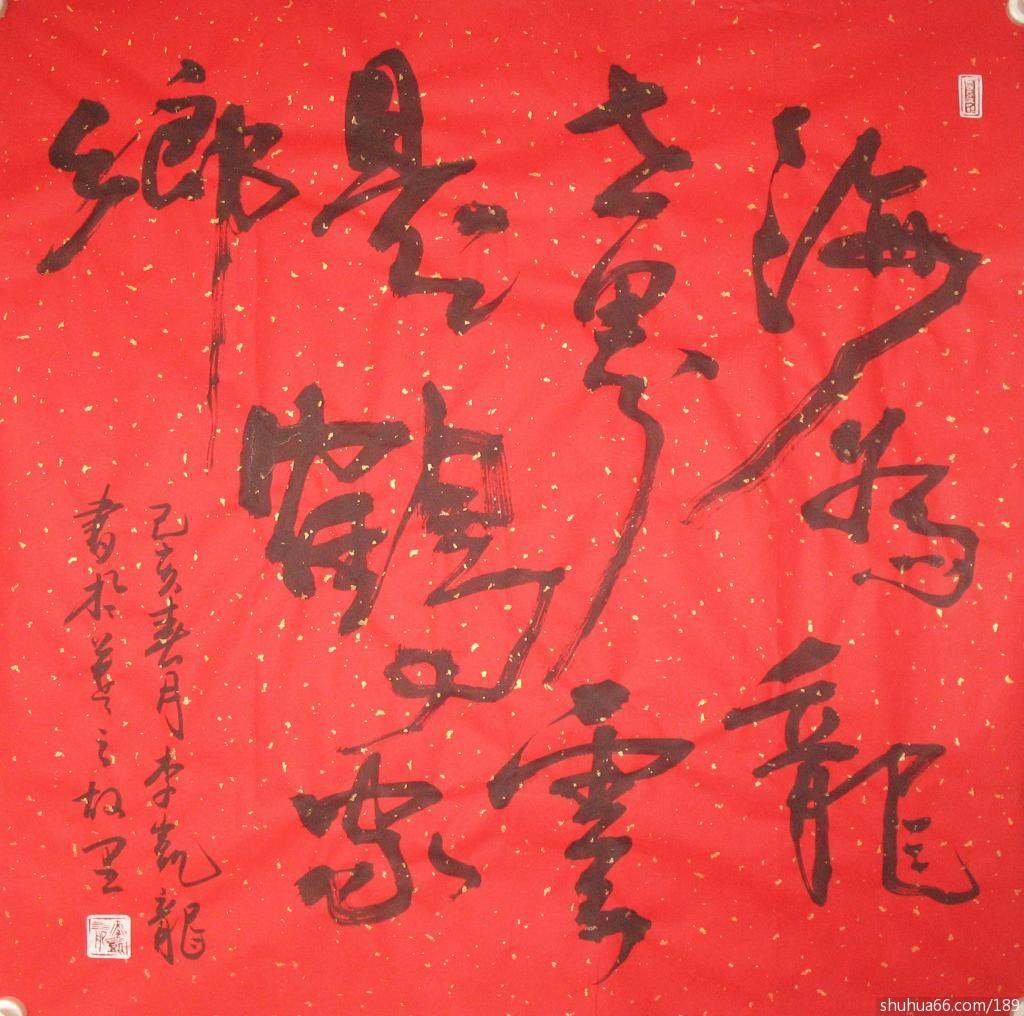 海為龍
世界雲
是鶴家
鄉
己亥春月李凱龍
書於羲之故里
shuhua66.com/189